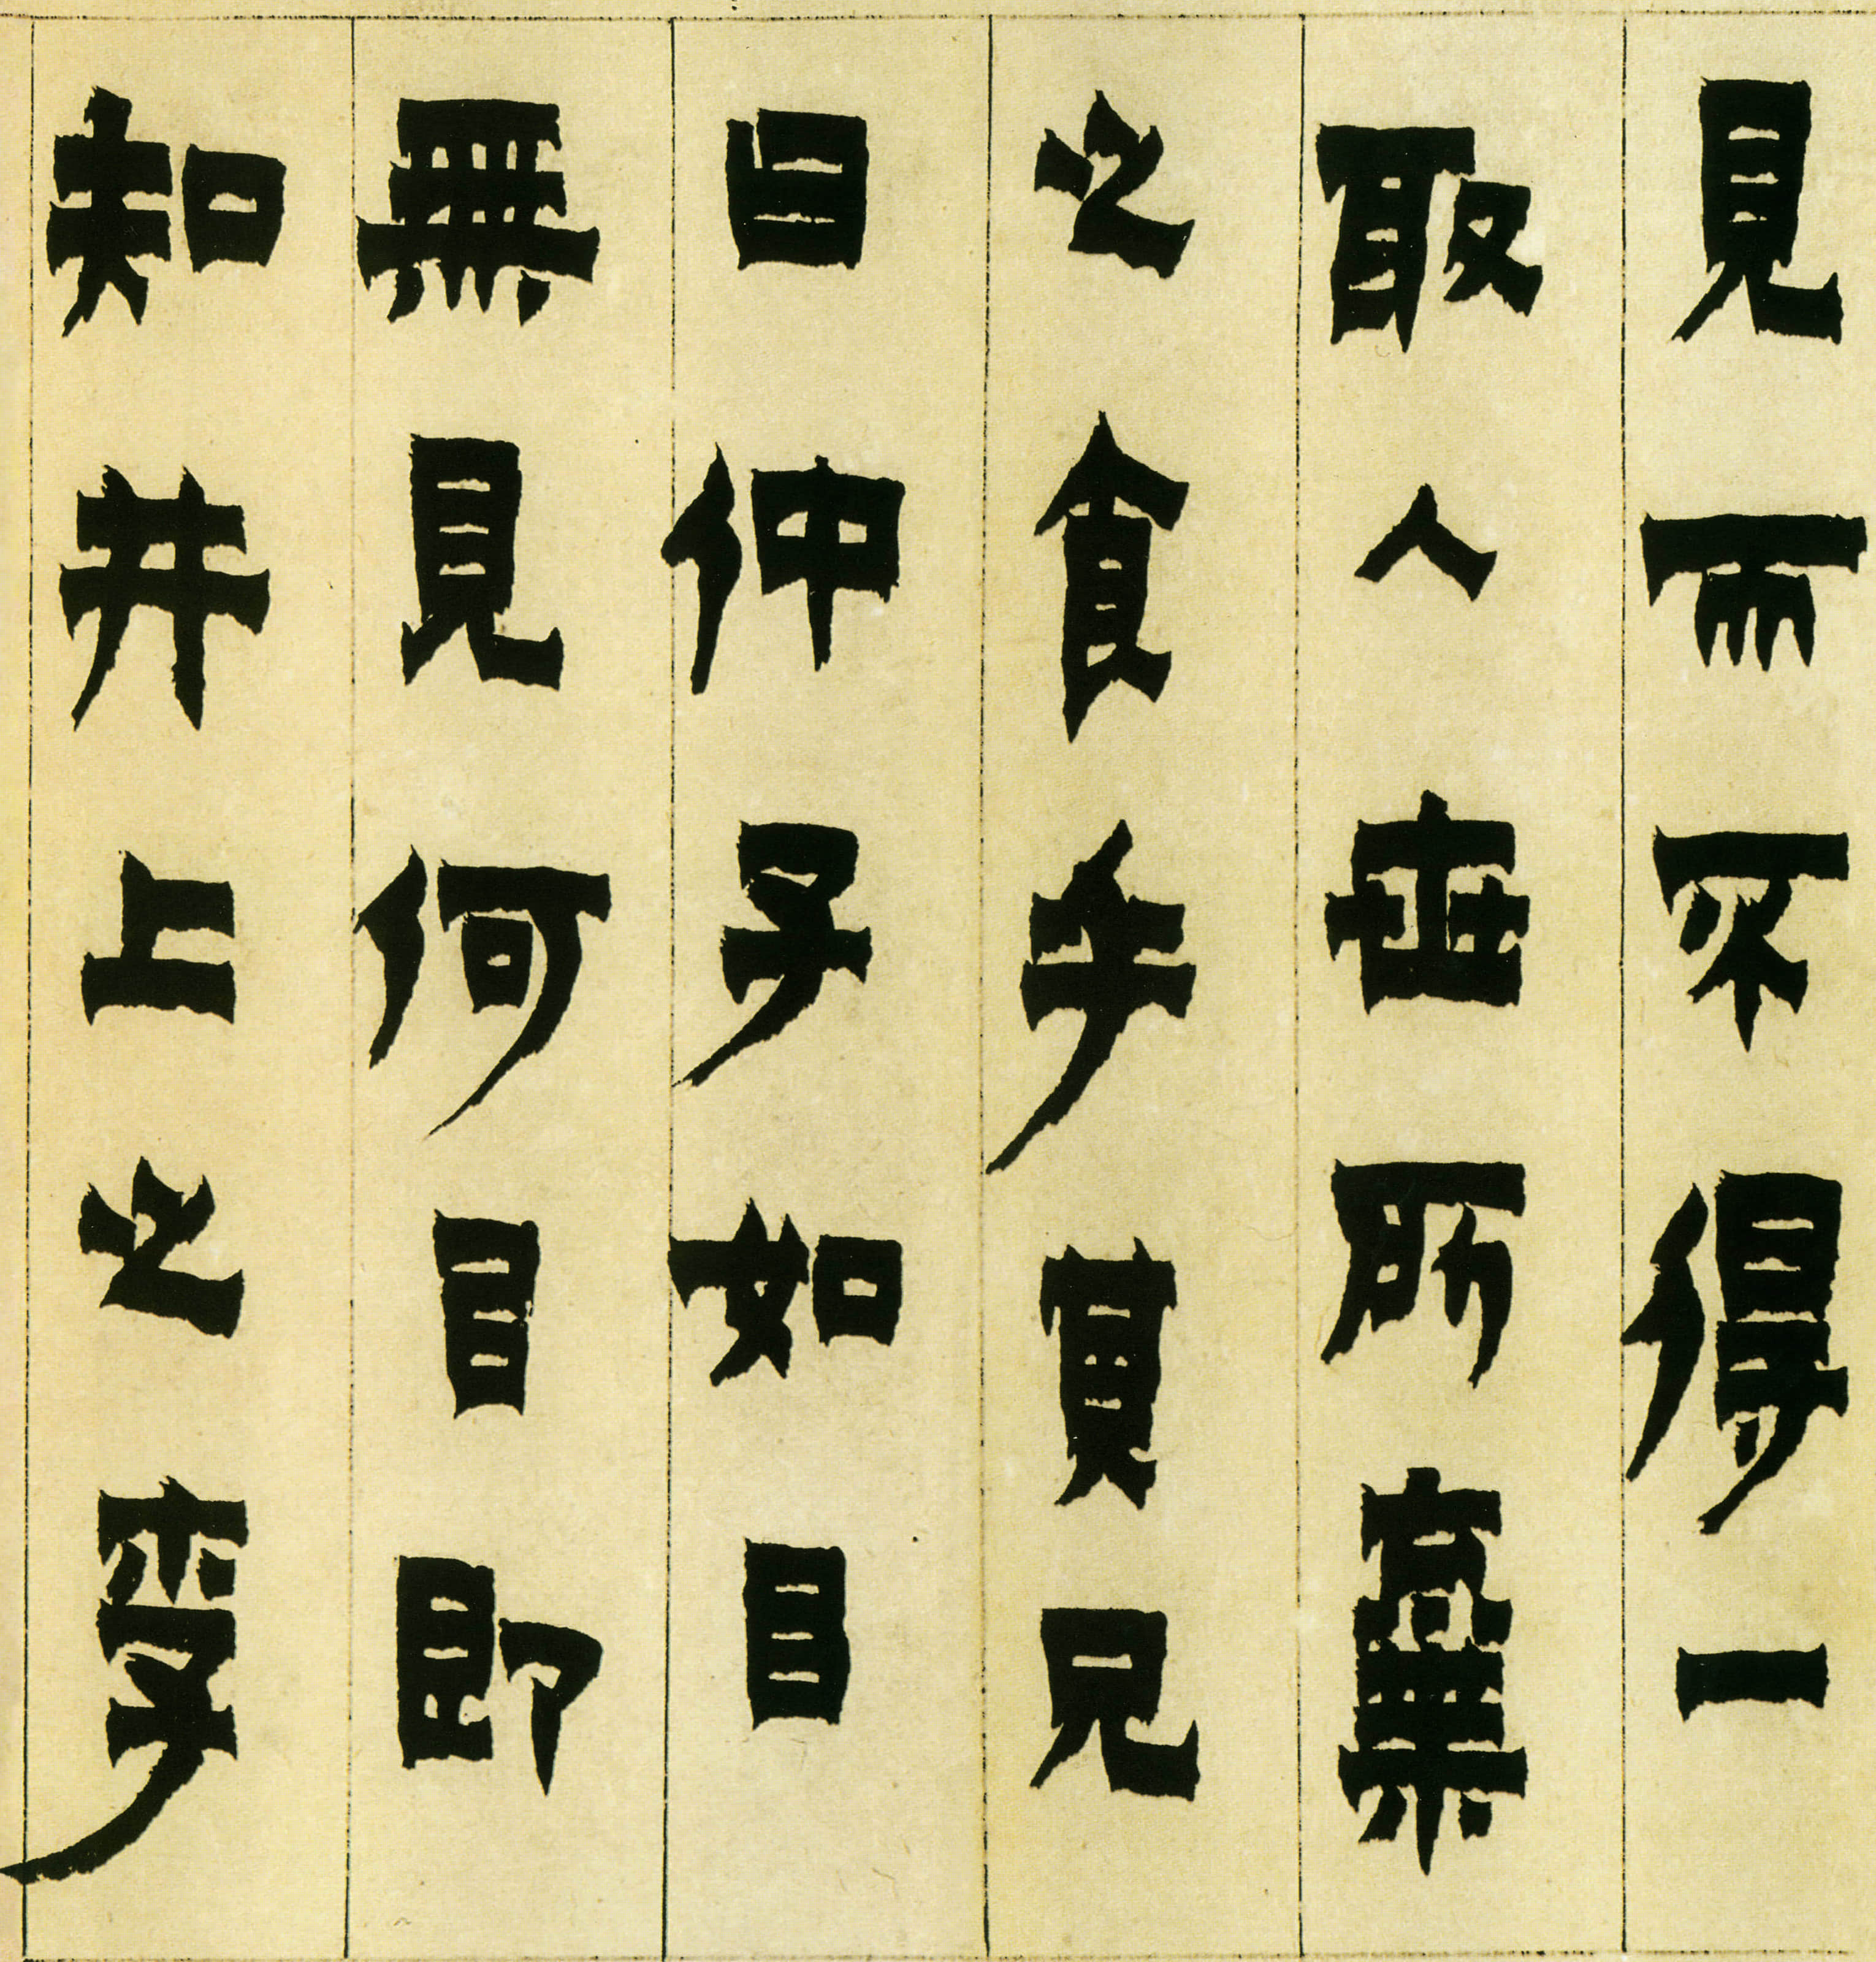 見而不得一
取人世所棄
之食乎其兄
曰仲子如目
無見何目即
知井上之李